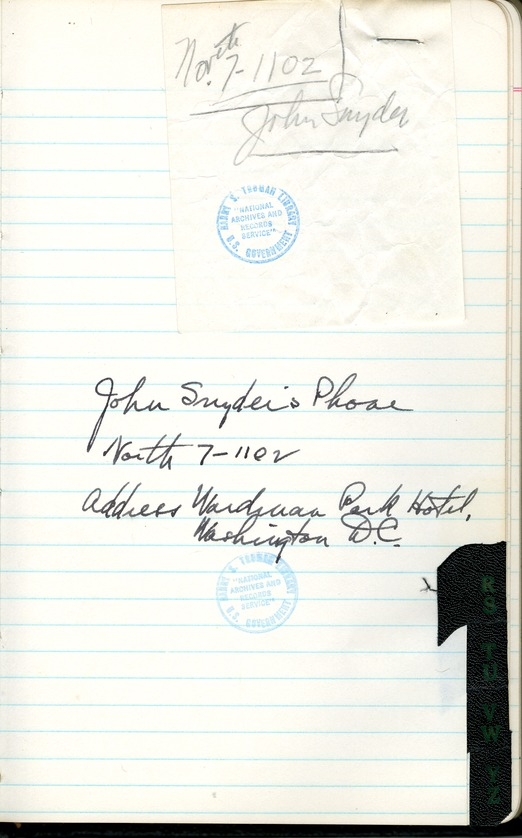 North
7-1102
John Snyder
HARRY S. TRUMAN LIBRARY
"NATIONAL
ARCHIVES AND
RECORDS
SERVICE"
U.S. GOVERNMENT
John Snyder's Phone
North 7-1102
Address Wardman Park Hotel,
Washington D.C.
HARRY S. TRUMAN LIBRARY
"NATIONAL
ARCHIVES AND
RECORDS
SERVICE"
U.S. GOVERNMENT
RS
TU
VW
YZ